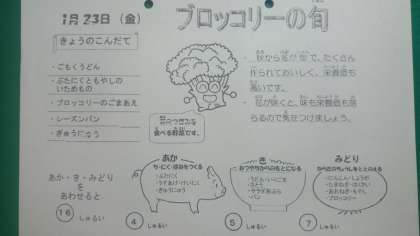 1月23日(金)
ブロッコリーの旬
きょうのこんだて
・ごもくうどん
・ぶたにくともやしの
いためもの
・ブロッコリーのごまあえ
・レーズンパン
・ぎゅうにゅう
・秋から冬が旬で、たくさん
作られておいしく、栄養価も
高いです。
・花が咲くと、味も栄養価も落ち
るので気をつけましょう。
花のつぼみを
食べる野菜です。
あか・き・みどり
をあわせると
16 しゅるい
あか
ち・にく・ほねをつくる
・ぶたにく
・ぎゅうにゅう
4 しゅるい
き
・パン
5 しゅるい
みどり
・にんじん・しょうが
・ブロッコリー
7 しゅるい